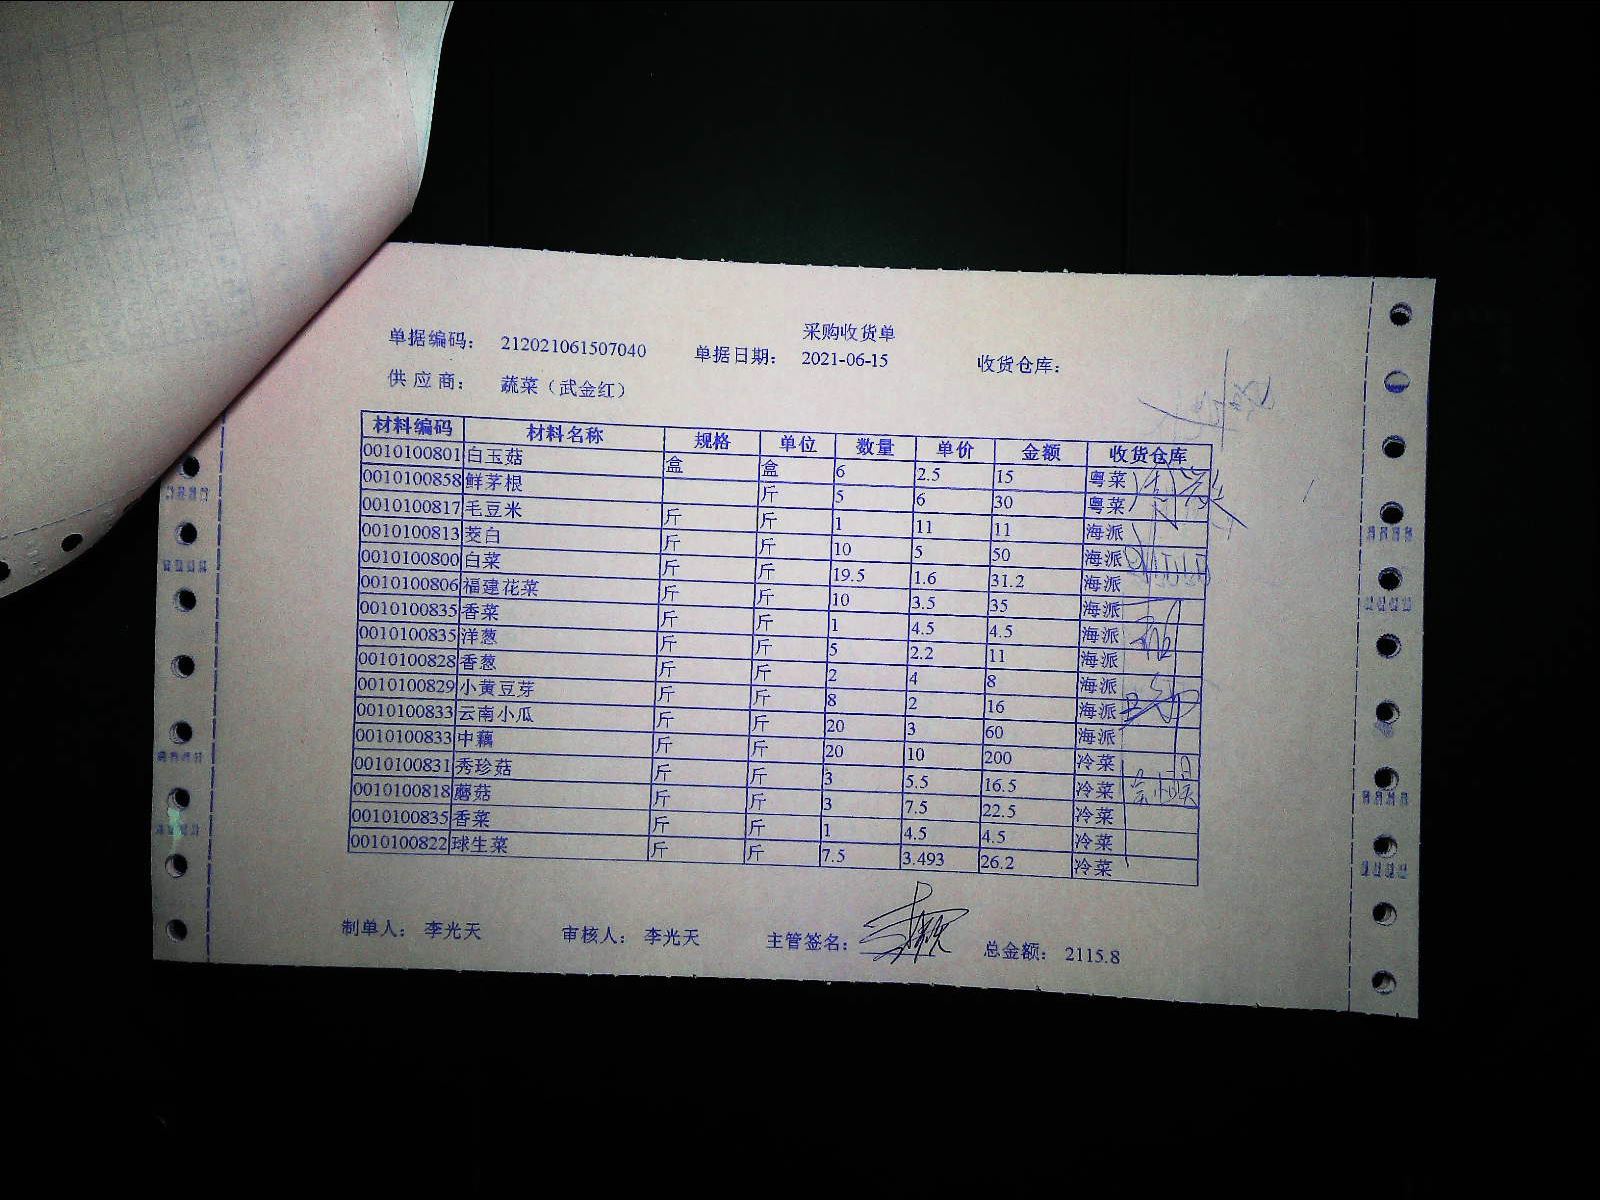 采购收货单
单据编码： 212021061507040 单据日期： 2021-06-15 收货仓库：
供应商： 蔬菜（武金红）
材料编码 材料名称 规格 单位 数量 单价 金额 收货仓库
0010100801 白玉菇 盒 盒 6 2.5 15 粤菜
0010100858 鲜茅根 斤 5 6 30 粤菜
0010100817 毛豆米 斤 斤 1 11 11 海派
0010100813 茭白 斤 斤 10 5 50 海派
0010100800 白菜 斤 斤 19.5 1.6 31.2 海派
0010100806 福建花菜 斤 斤 10 3.5 35 海派
0010100835 香菜 斤 斤 1 4.5 4.5 海派
0010100835 洋葱 斤 斤 5 2.2 11 海派
0010100828 香葱 斤 斤 2 4 8 海派
0010100829 小黄豆芽 斤 斤 8 2 16 海派
0010100833 云南小瓜 斤 斤 20 3 60 海派
0010100833 中藕 斤 斤 20 10 200 冷菜
0010100831 秀珍菇 斤 斤 3 5.5 16.5 冷菜
0010100818 蘑菇 斤 斤 3 7.5 22.5 冷菜
0010100835 香菜 斤 斤 1 4.5 4.5 冷菜
0010100822 球生菜 斤 斤 7.5 3.493 26.2 冷菜
制单人： 李光天 审核人： 李光天 主管签名： 总金额： 2115.8